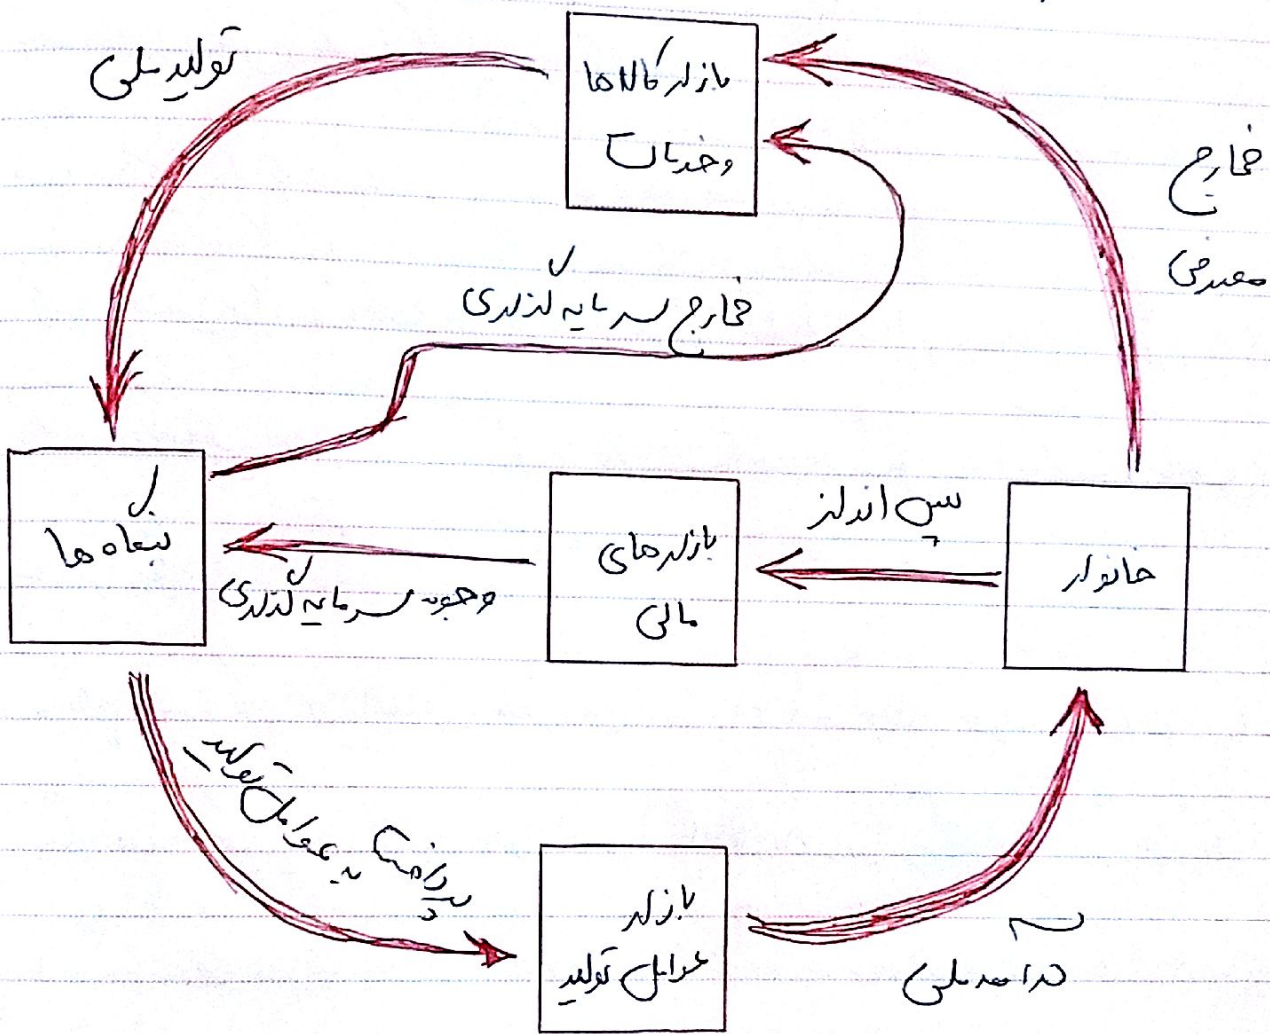 تولید ملی
بازار کالاها
و خدمات
خارج
مصرفی
خارج سرمایه گذاری
بنگاه ها
وجوه سرمایه گذاری
بازارهای
مالی
پس انداز
خانوار
پرداخت به عوامل تولید
بازار
عوامل تولید
درآمد ملی